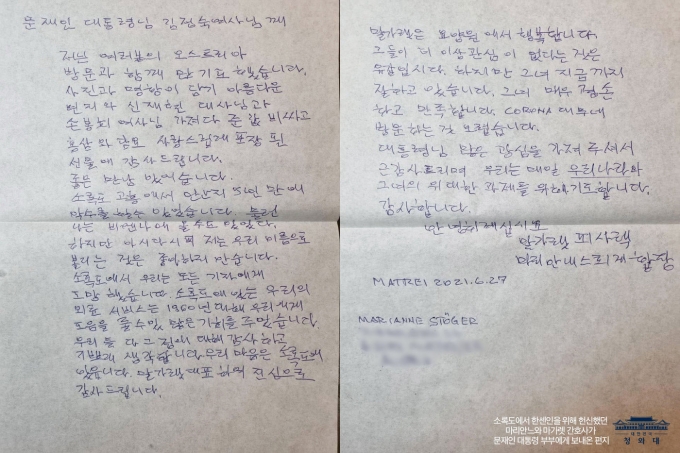 문재인 대통령님 김정숙여사님께
저는 여러분의 오스트리아
방문과 함께 만 기뻐 했습니다.
사진과 명함이 담기 아름다운
편지와 신재현 대사님과
손봉지 여사님 가져다 준 값 비싸고
홍삼과 담요 사랑스럽게 포장 된
선물에 감사드립니다.
좋은 만남 있었습니다.
소록도 고흥에서
악수를 할수 있었습니다
나는 비엔나에 올 수도 있었다.
하지만 아시다시피 저는 우리 이름으로
불리는 것은 좋아하지 안습니다.
소록도에서 우리는 모든 기자에게
도망 했습니다. 소록도에 있는 우리의
서비스는 1960년대에 우리에게
도움을 줄수있 많은 기회를 주었습니다.
우리 둘 다 그 점에 대해 감사하고
기쁘게 생각합니다. 우리 마음은 소록도에
있읍니다. 말가렛 대표하며 진심으로
감사드립니다.
말가렛은 요양원에서 행복합니다.
그들이 더 이상관심이 없다는 것은
유감입시다. 하지만 그녀 지금까지
잘하고 있습니다. 그녀 매우 겸손
하고 만족합니다. CORONA 때문에
방문하는 것 어렵습니다.
대통령님 많은 관심을 가져 주셔서
감사드리며 우리는 매일 우리나라와
그녀의 위대한 과제를 위해 기도합니다.
감사합니다.
안녕히 계십시오
말가렛 피사렉
마리안네 스퇴거 올림
MATREI 2021.6.27
MARIANNE STÖGER
소록도에서 한센인을 위해 헌신했던
마리안느와 마가렛 간호사가
문재인 대통령 부부에게 보내온 편지
대한민국
청와대